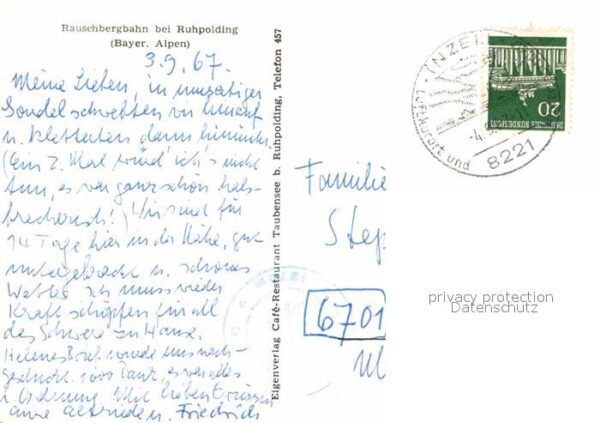 Rauschbergbahn bei Ruhpolding
(Bayer. Alpen)
3.9.67.
Meine Lieben, in
Gondel schwebten wir hinauf
u. kletterten dann hinunter
(ein 2. Mal würd' ich's nicht
tun, es war ganz schön hals-
brecherisch!) Wir sind für
14 Tage hier in der Nähe, gut
untergebracht u. schönes
Wetter. Ich muss wieder
Kraft schöpfen für all
das Schwere zu Hause.
Helenes Brief wurde uns nach-
geschickt. 1000 Dank, es war alles
in Ordnung. Mit lieben Grüssen
Friedrich
Eigenverlag Café-Restaurant Taubensee b. Ruhpolding, Telefon 457
INZEL
Luftkurort und
-4.9
8221
20
DEUTSCHE BUNDESPOST
Familie
Step
6701
privacy protection
Datenschutz